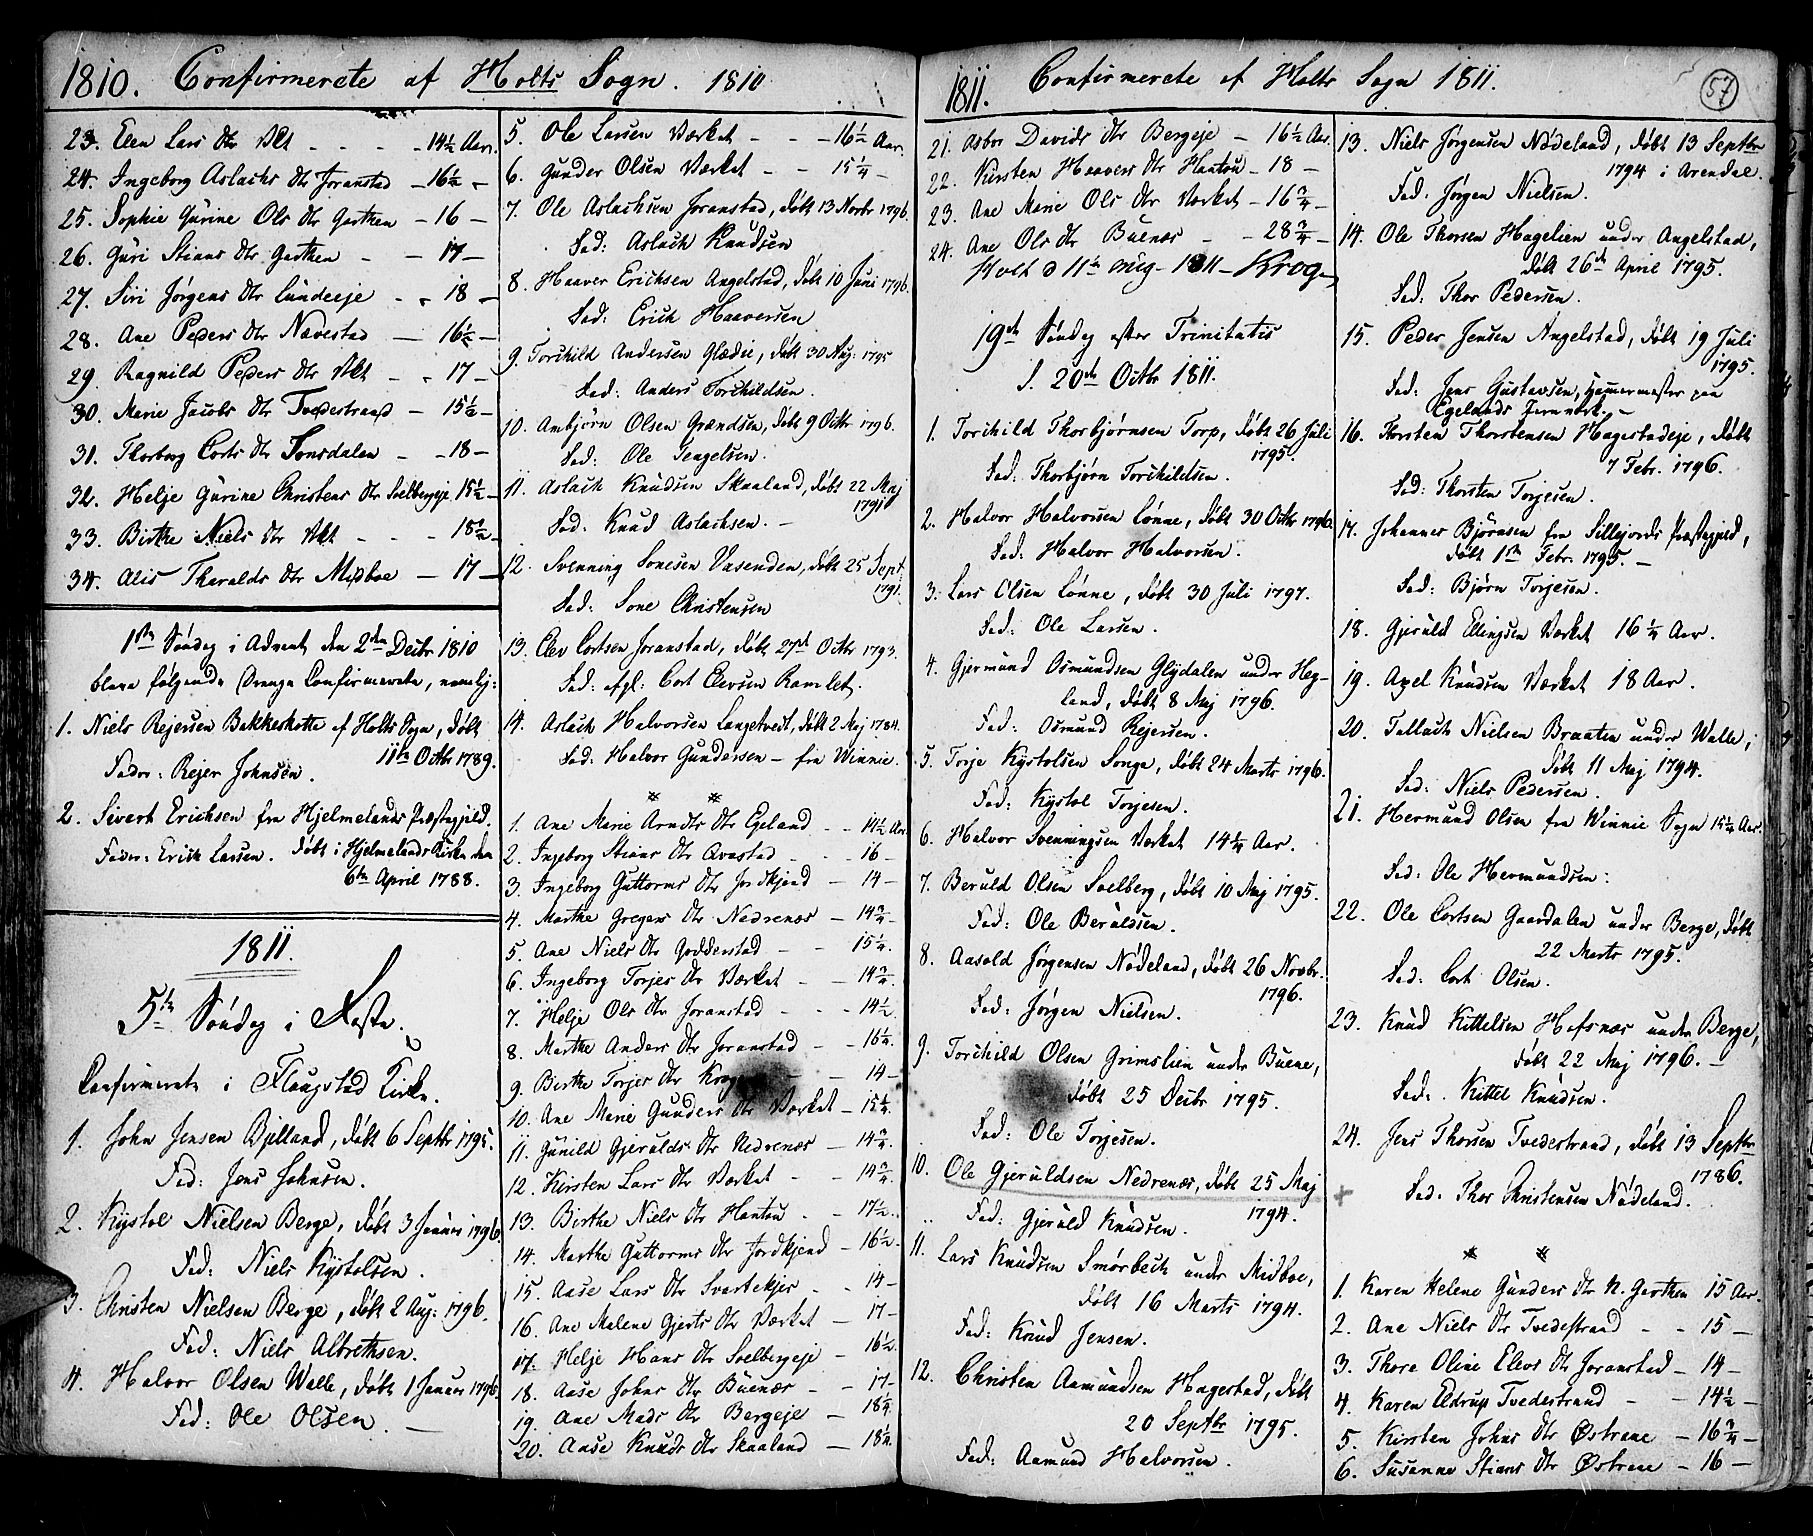 1810. Confirmerete af Holts Sogn. 1810
23. Elen Lars Dtr Vkt - - - - 14½ Aar.
24. Ingeborg Aslachs Dtr Joranstad - 16½ -
25. Sophie Gurine Ols Dtr Garthen - 16 -
26. Guri Stians Dtr Garthen - - 17 -
27. Siri Jørgens Dtr Lundeeje - - 18 -
28. Ane Peders Dtr Navestad - 16½ -
29 Ragnild Peders Dtr Vkt - - 17 -
30. Marie Jacobs Dtr Tvedestrand - 15½ -
31. Thorborg Corts Dtr Sonsdalen - - 18 -
32. Helje Gurine Christens Dtr Solbergeje 15½ -
33. Birthe Niels Dtr Vkt - - - 18½ -
34. Alis Theralds Dtr Midboe - 17 -
1ste Søndag i Advent den 2den Decbr 1810
bleve følgende Drenge Confirmerete, nemlig:
1. Niels Rejersen Bakkeskotte af Holts Sogn, født
11te Octbr 1789.
Fader: Rejer Johnsen.
2. Sivert Erichsen fra Hjelmelands Præstegjeld.
Fader: Erich Larsen. født i Hjelmelands Kirke den
6te April 1788.
1811.
5te Søndag i Faste.
Confirmerete i Flaugstad Kirke.
1. John Jensen Bjelland, født 6 Septbr 1795.
Fad: Jens Johnsen.
2. Kystol Nielsen Berge, født 3 Januar 1796
Fad: Niels Kystolsen.
3. Christen Nielsen Berge, født 2 Aug: 1796.
Fad: Niels Albrethsen.
4. Halvor Olsen Walle, født 1 Januar 1796.
Fad: Ole Olsen. -
5. Ole Larsen Værket - - - 16½ Aar.
6. Gunder Olsen Værket - - 15¼ -
7. Ole Aslachsen Joranstad, født 13 Novbr 1796.
Fad: Aslach Knudsen
8. Haaver Erichsen Angelstad, født 10 Juni 1796.
Fad: Erich Haaversen
9. Torchild Andersen Glædie, født 30 Aug: 1795
Fad: Anders Torchildsen.
10. Anbjørn Olsen Grændsen, født 9 Octbr 1796.
Fad: Ole Tengelsen.
11. Aslach Knudsen Skaaland, født 22 Maj
1791
Fad: Knud Aslachsen. -
12. Svenning Sonesen Vasenden, født 25 Sept
1791.
Fad: Sone Christensen
13. Elev Cortsen Joranstad, født 27de Octbr 1793.
Fad: afgl: Cort Elevsen Ramlet.
14. Aslach Halvorsen Langetvedt, født 2 Maj 1784.
Fad: Halvor Gundersen - fra Winnie.
* *
1. Ane Marie Arndts Dtr Egeland - - 14½ Aar
2. Ingeborg Stians Dtr Qvastad - - - 16 -
3. Ingeborg Guttorms Dtr Jordkjend - 14 -
4. Marthe Gregers Dtr Nedrenæs - 14¾ -
5. Ane Niels Dtr Godderstad - - 15¼ -
6. Ingeborg Torjes Dtr Værket - - 14¾ -
7. Helje Ols Dtr Joranstad - - - 14½
8. Marthe Anders Dtr Joranstad - - 16¼.
9. Birthe Torjes Dtr - - 14 -
10. Ane Marie Gunders Dtr Værket - 15¼.
11. Gunild Gjerulds Dtr Nedrenæs - 14¾.
12. Kirsten Lars Dtr Værket - - 14¾.
13. Birthe Niels Dtr Hantou - - 17½.
14. Marthe Guttorms Dtr Jordkjend - 16½.
15. Aase Lars Dtr Svartekjær - - 14 -
16. Ane Malene Gjerts Dtr Værket - 17 -
17. Helje Hans Dtr Solbergeje - 16½.
18. Aase Johns Dtr Buenæs - - 17 -
19. Ane Mads Dtr Bergeje - 18¼.
20. Aase Knuds Dtr Skaaland - 18¼.
1811. Confirmerete af Holts Sogn 1811. 57
21. Asbor Davids Dtr Bergeje - 16½ Aar.
22. Kirsten Haavers Dtr Hantou - 18 -
23. Ane Marie Ols Dtr Værket - 16¾ -
24. Ane Ols Dtr Buenæs - - 28¾ -
Holt d 11te Aug - 1811 - Krog
19de Søndag efter Trinitatis
d. 20de Octbr 1811.
1. Torchild Thorbjørnsen Torp, født 26 Juli
1795.
Fad: Thorbjørn Torchildsen.
2. Halvor Halvorsen Lønne, født 30 Octbr 1796.
Fad: Halvor Halvorsen.
3. Lars Olsen Lønne, født 30 Juli 1797.
Fad: Ole Larsen.
4. Gjermund Osmundsen Glydalen under Heg-
land, født 8 Maj 1796.
Fad: Osmund Rejersen.
5. Torje Kystolsen Songe, født 24 Marts 1796.
Fad: Kystol Torjesen.
6. Halvor Svenningsen Værket 14¼ Aar.
7. Beruld Olsen Solberg, født 10 Maj 1795.
Fad: Ole Beruldsen.
8. Aasold Jørgensen Nødeland, født 26 Novbr.
1796.
Fad: Jørgen Nielsen.
9. Torchild Olsen Grimslien under Buene,
født 25 Decbr 1795.
Fad: Ole Torjesen.
10. Ole Gjeruldsen Nedrenæs, født 25 Maj
1794.
Fad: Gjeruld Knudsen.
11. Lars Knudsen Smørbech under Midboe,
født 16 Marts 1794.
Fad: Knud Jensen.
12. Christen Aamundsen Hagestad, født
20 Septbr 1795.
Fad: Aamund Halvorsen.
13. Niels Jørgensen Nødeland, født 13 Septbr
1794 i Arendal.
Fad: Jørgen Nielsen.
14. Ole Thorsen Hagelien under Angelstad,
født 26de April 1795.
Fad: Thor Pedersen.
15. Peder Jensen Angelstad, født 19 Juli
1795.
Fad: Jens Gustavsen, Hammermester paa
Egelands Jernverk. -
16. Thorsten Thorstensen Hagestadeje, født
7 Febr. 1796.
Fad: Thorsten Torjesen.
17. Johannes Bjørnsen fra Sillejords Præstegjeld,
født 1ste Febr. 1795. -
Fad: Bjørn Torjesen.
18. Gjeruld Ellingsen Værket 16¼ Aar.
19. Axel Knudsen Værket 18 Aar.
20. Tallach Nielsen Braaten under Walle,
født 11 Maj 1794.
Fad: Niels Pedersen.
21. Hermund Olsen fra Winnie Sogn 15¼ Aar.
Fad: Ole Hermundsen.
22. Ole Cortsen Gaardalen under Berge, født
22 Marts 1795.
Fad: Cort Olsen.
23. Knud Kittelsen Hafsnæs under Berge,
født 22 Maj 1796. -
Fad: Kittel Knudsen.
24. Jens Thorsen Tvedestrand, født 13 Septbr
1786.
Fad: Thor Christensen Nødeland.
* *
1. Karen Helene Gunders Dtr N. Garthen 15 Aar.
2. Ane Niels Dtr Tvedestrand - - 15 -
3. Thore Oline Elevs Dtr Joranstad - 14 -
4. Karen Eldrup Tvedestrand - - 14½ -
5. Kirsten Johns Dtr Østraae - 16¾ -
6. Susanne Stians Dtr Østraae - 16 -